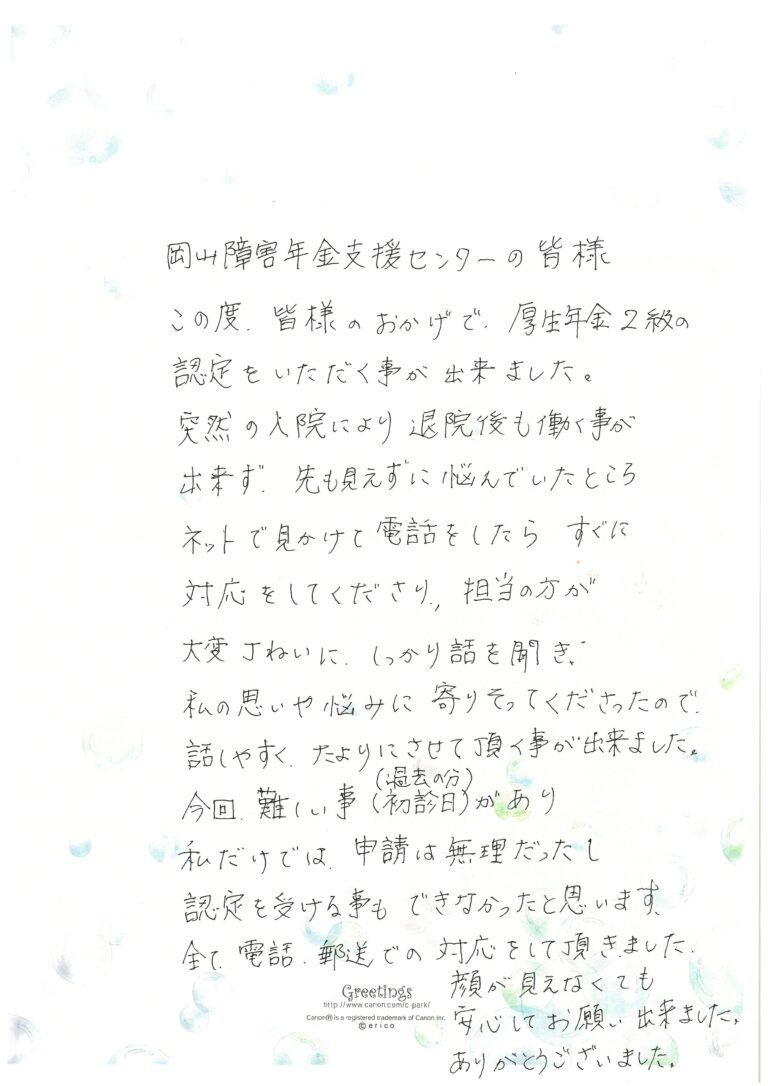 岡山障害年金支援センターの皆様
この度、皆様のおかげで、厚生年金2級の
認定をいただく事が出来ました。
突然の入院により退院後も働く事が
出来ず、先も見えずに悩んでいたところ
ネットで見かけて電話をしたら すぐに
対応をしてくださり、担当の方が
大変丁ねいに、しっかり話を聞き、
私の思いや悩みに寄りそってくださったので、
話しやすく、たよりにさせて頂く事が出来ました。
(過去の分)
今回、難しい事(初診日)があり
私だけでは、申請は無理だったし
認定を受ける事も できなかったと思います。
全て、電話、郵送での対応をして頂きました、
顔が見えなくても
安心してお願い出来ました。
ありがとうございました。
Greetings
http://www.canon.com/c-park/
Canon® is a registered trademark of Canon Inc.
© erico